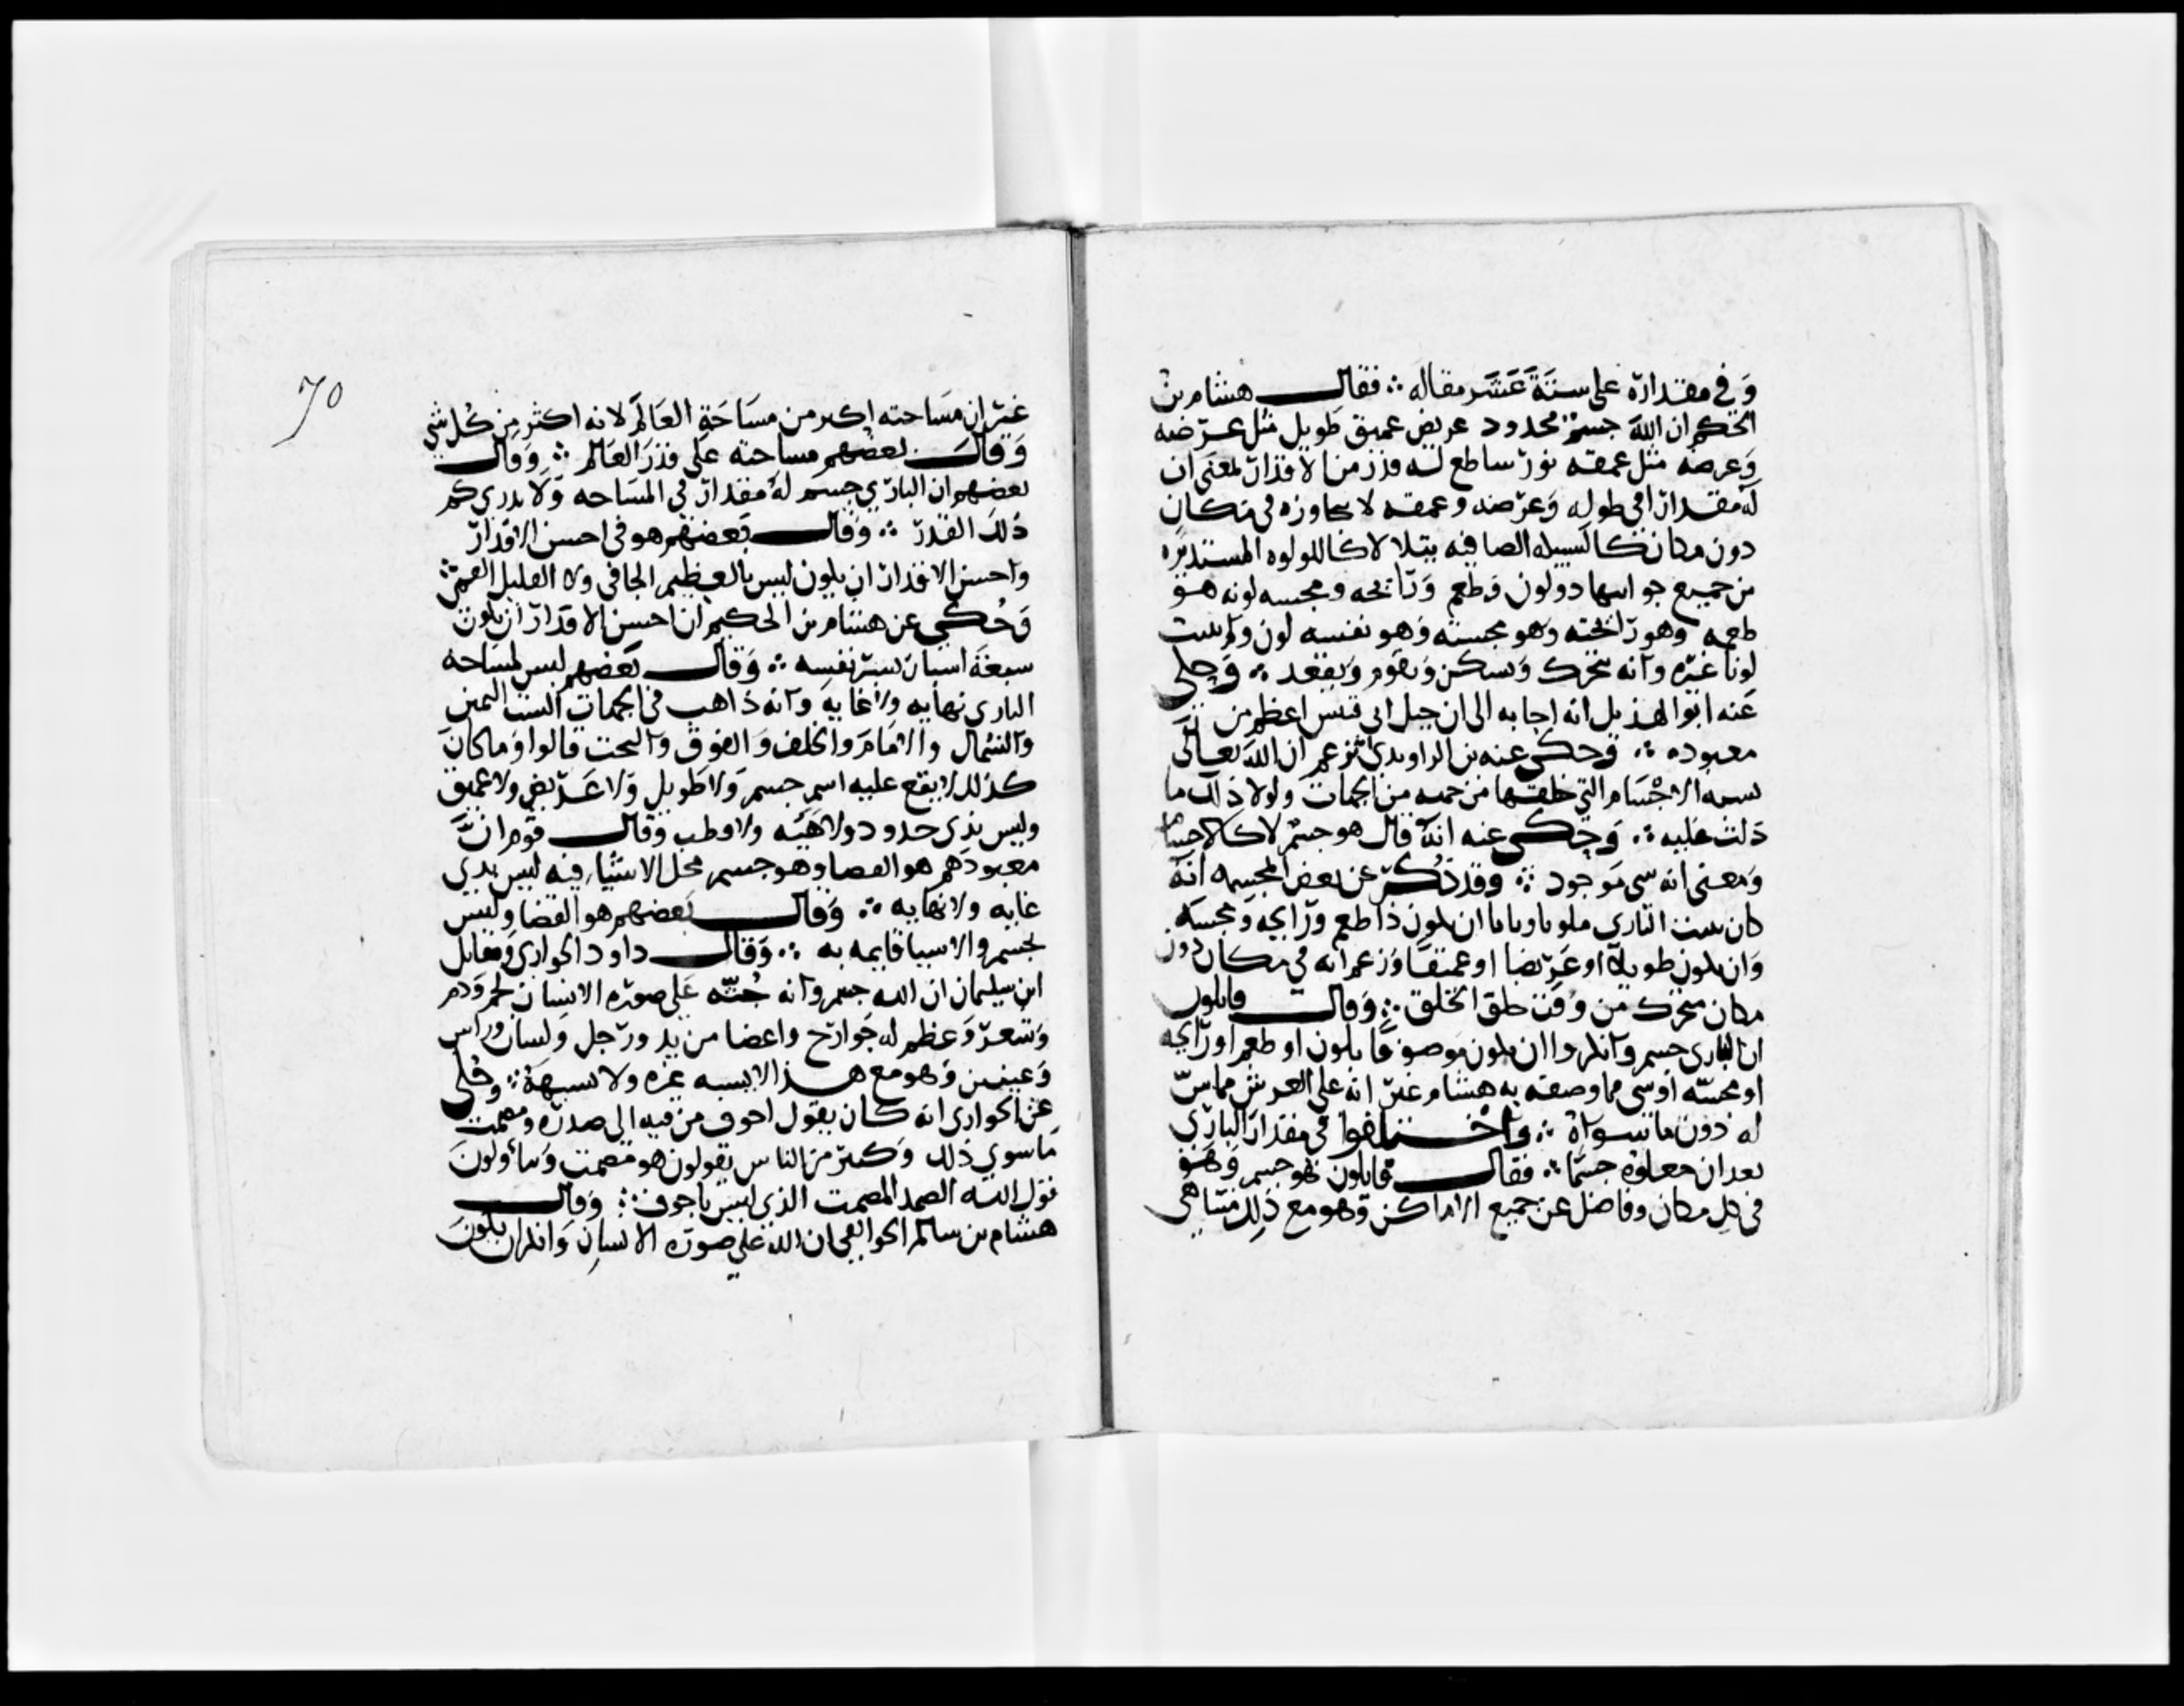 وفي مقداره على ستة عشر مقاله ∴ فقال هشام بن
الحكم ان الله جسم محدود عريض عميق طويل مثل عرضه
وعرضه مثل عمقه نور ساطع له قدر من الاقدار بمعنى ان
له مقدارا في طوله وعرضه وعمقه لا يتجاوزه في مكان
دون مكان كالسبيكه الصافيه يتلالا كاللولوه المستديره
من جميع جوانبها ذو لون وطعم ورائحه ومجسه لونه هو
طعمه وهو رائحته وهو مجسته وهو نفسه لون ولم يثبت
لونا غيره وانه يتحرك ويسكن ويقوم ويقعد ∴ وحكى
عنه ابو الهذيل انه اجابه الى ان جبل ابي قبيس اعظم من
معبوده ∴ وحكى عنه بن الراوندي انه زعم ان الله تعالى
يشبه الاجسام التي خلقها من جهه من الجهات ولولا ذلك ما
دلت عليه ∴ وحكى عنه انه قال هو جسم لا كالاجسام
ومعنى انه شي موجود ∴ وقد ذكر عن بعض المجسمه انه
كان يثبت الباري ملونا ويابا ان يكون ذا طعم ورايحه ومجسه
وان يكون طويلا او عريضا او عميقا وزعم انه في مكان دون
مكان متحرك من وقت خلق الخلق ∴ وقال قايلون
ان الباري جسم وانكروا ان يكون موصوفا بلون او طعم او رايحه
او مجسه او شي مما وصفه به هشام غير انه على العرش مماس
له دون ما سواه ∴ واختلفوا في مقدار الباري
بعد ان جعلوه جسما ∴ فقال قايلون هو جسم وهو
في كل مكان وفاضل عن جميع الاماكن وهو مع ذلك متناهى
70
غير ان مساحته اكبر من مساحة العالم لانه اكثر من كل شي
وقال بعضهم مساحته على قدر العالم ∴ وقال
بعضهم ان الباري جسم له مقدار في المساحه ولا يدرى كم
ذلك القدر ∴ وقال بعضهم هو في احسن الاقدار
واحسن الاقدار ان يكون ليس بالعظيم الجافي ولا القليل القمي ∴
وحكي عن هشام بن الحكم ان احسن الاقدار ان يكون
سبعة اشبار بشبر نفسه ∴ وقال بعضهم ليس لمساحه
الباري نهايه ولا غايه وانه ذاهب في الجهات الست اليمين
والشمال والامام والخلف والفوق والتحت قالوا وما كان
كذلك لا يقع عليه اسم جسم ولا طويل ولا عريض ولا عميق
وليس بذى حدود ولا هيئه ولا قطب وقال قوم ان
معبودهم هو الفضا وهو جسم تحل الاشياء فيه ليس بذي
غايه ولا نهايه ∴ وقال بعضهم هو الفضا وليس
بجسم والاشيا قايمه به ∴ وقال داود الجواربي ومقاتل
ابن سليمان ان الله جسم وانه جثه على صوره الانسان لحم ودم
وشعر وعظم له جوارح واعضا من يد ورجل ولسان وراس
وعينين وهو مع هذا لا يشبه غيره ولا يشبهه ∴ وحكى
عن الجواربى انه كان يقول اجوف من فيه الى صدره ومصمت
ما سوى ذلك وكثير من الناس يقولون هو مصمت ويتأولون
قول الله الصمد المصمت الذى ليس باجوف ∴ وقال
هشام بن سالم الجواليقي ان الله على صوره الانسان وانكر ان يكون